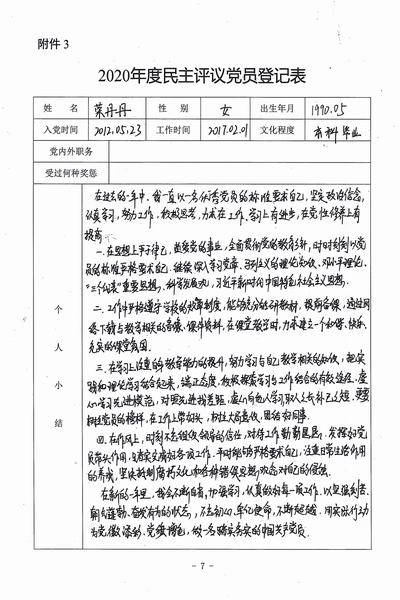 附件 3
2020年度民主评议党员登记表
姓 名 荣丹丹 性 别 女 出生年月 1990.05
入党时间 2012.05.23 工作时间 2017.02.01 文化程度 本科 毕业
党内外职务
受过何种奖惩
个人小结
在过去的一年中,我一直以一名优秀党员的标准要求自己,坚定政治信念,
认真学习,努力工作,积极思考,力求在工作、学习上有进步,在党性修养上有
提高。
一、在思想上
党的教育方针,时时刻刻以党
员的标准严格要求自己,继续深入学习党章、马列主义的理论知识、邓小平理论、
“三个代表”重要思想、科学发展观,习近平新时代中国特色社会主义思想。
二、工作中严格遵守学校的规章制度,能够充分的研教材,提前备课,通过网
络下载与教学相关的音像、课件资料,在课堂教学时,力求建立一个和谐、快乐、
充实的课堂氛围。
三、在学习上注重自身教育能力的提升,努力学习与自己教学相关的知识,把实
践和理论学习结合起来,端正态度,积极探索学习与工作结合的有效途径,虚
心学习先进模范,对照先进找差距,虚心向他人学习取人之长补己之短,
树立党员的榜样,在工作上带好头,树立大局意识,团结好同事。
四、在作风上,时刻不忘组织领导的信任,对待工作勤勤恳恳,发挥好党
员带头作用,
平时能够严格要求自己,注重日常生活作用
的养成,坚决抵制腐朽文化和各种错误思想观念对自己的侵蚀。
在新的一年里,我会不断自省,加强学习,认真做好每一项工作,以坚强刻苦、
朝气蓬勃、奋发有为的状态,不忘初心、牢记使命,不断超越,用实际行动
为党徽添彩、党旗增色,做一名踏实务实的中国共产党员。
- 7 -